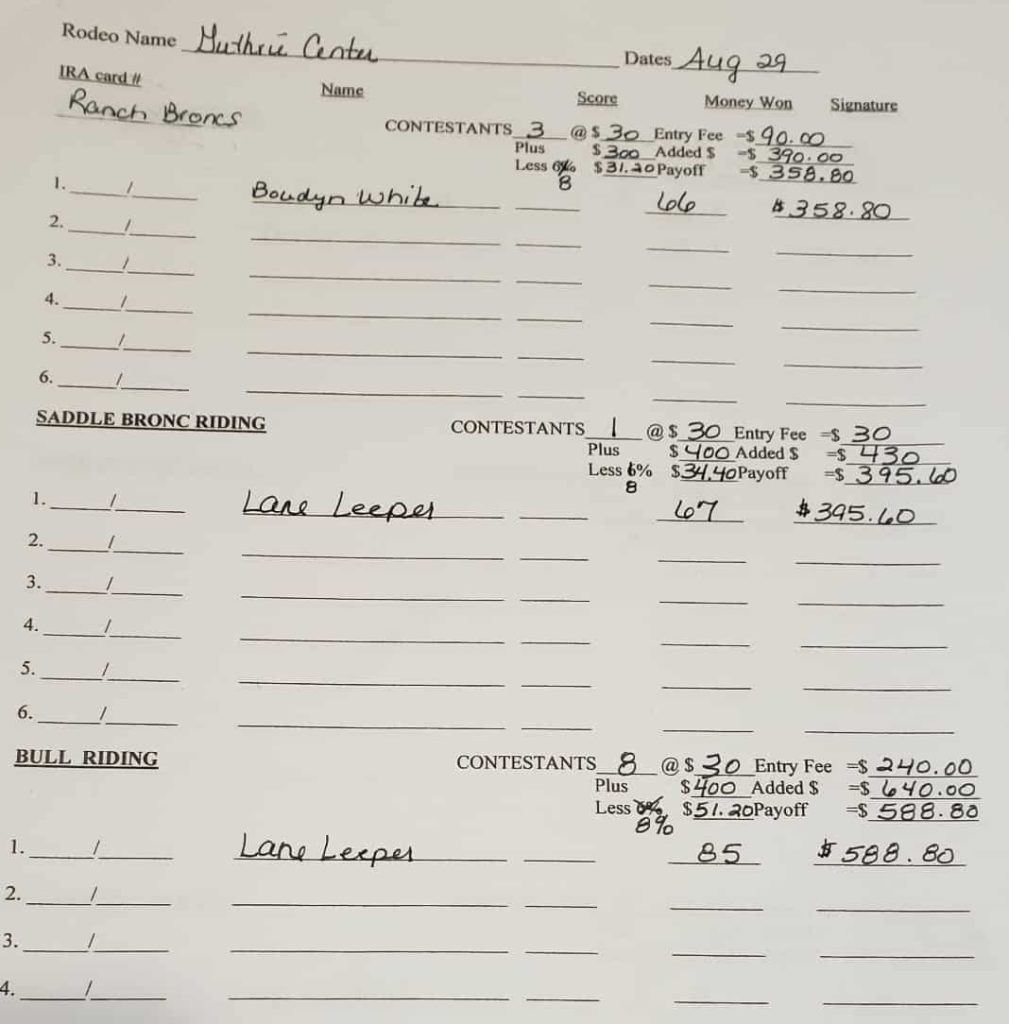 Rodeo Name Guthrie Center Dates Aug 29
IRA card # Name Score Money Won Signature
Ranch Broncs
CONTESTANTS 3 @ $ 30 Entry Fee =$ 90.00
Plus $ 300 Added $ =$ 390.00
Less 6% $31.20 Payoff =$ 358.80
8
1. / Boudyn White 66 $358.80
2. /
3. /
4. /
5. /
6. /
SADDLE BRONC RIDING CONTESTANTS 1 @ $ 30 Entry Fee =$ 30
Plus $ 400 Added $ =$ 430
Less 6% $34.40 Payoff =$ 395.60
8
1. / Lane Leeper 67 $395.60
2. /
3. /
4. /
5. /
6. /
BULL RIDING CONTESTANTS 8 @ $ 30 Entry Fee =$ 240.00
Plus $400 Added $ =$ 640.00
Less 6% $51.20 Payoff =$ 588.80
8%
1. / Lane Leeper 85 $588.80
2. /
3. /
4. /